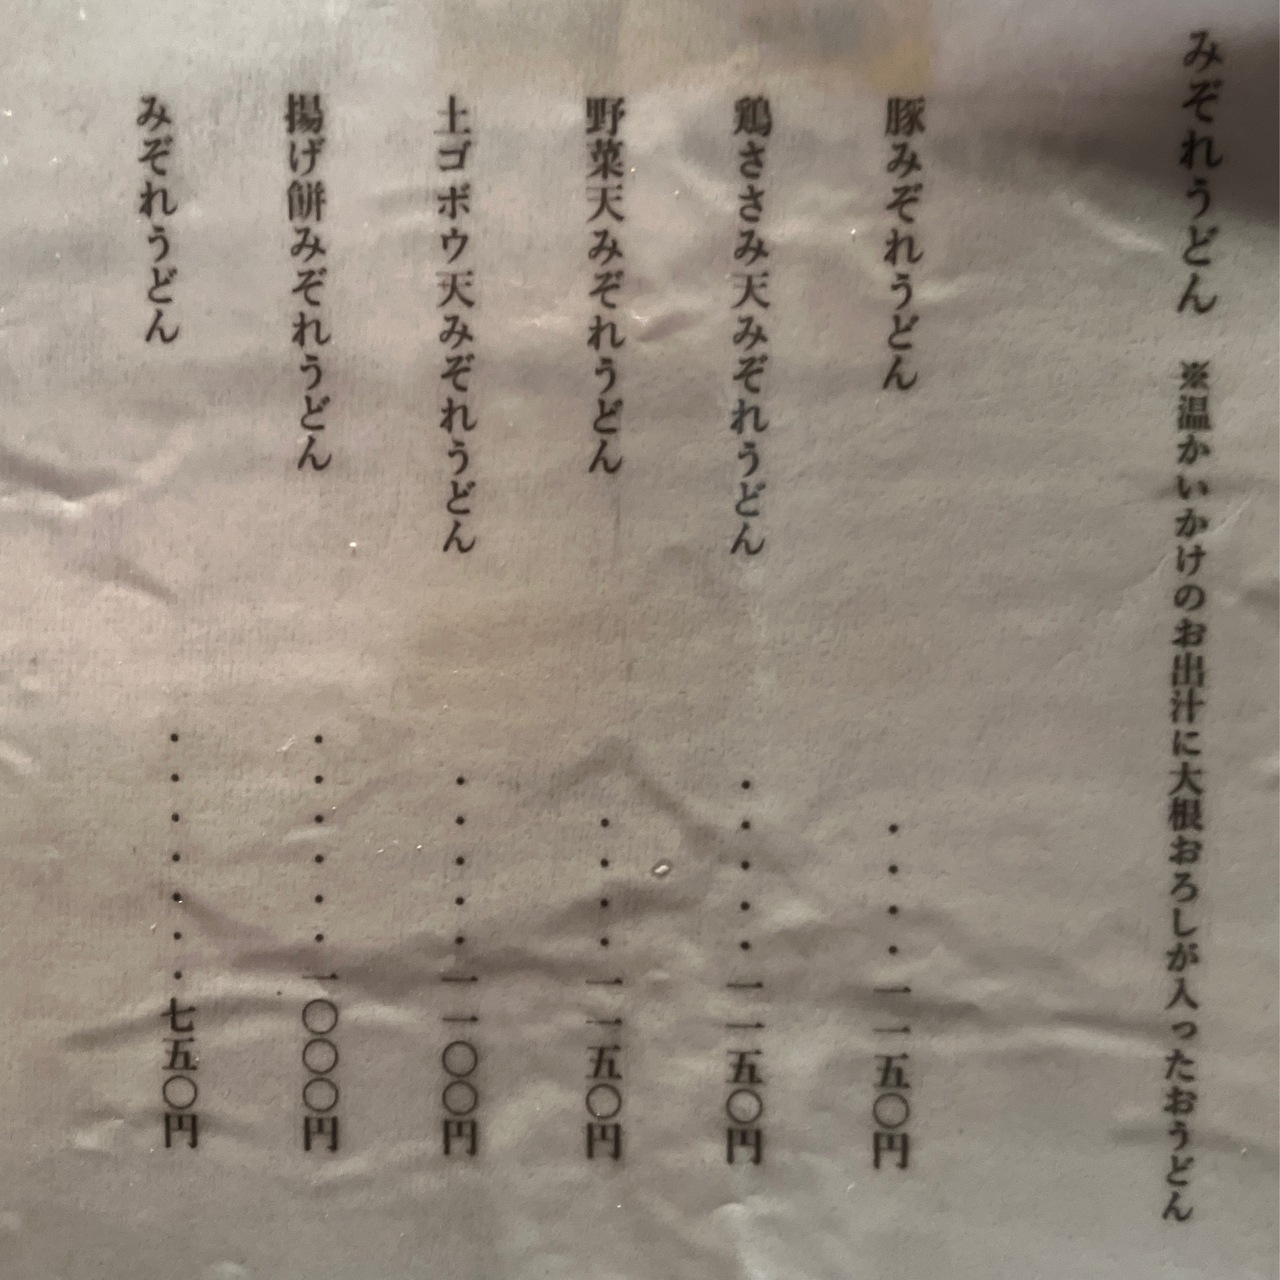 みぞれうどん ※温かいかけのお出汁に大根おろしが入ったおうどん
豚みぞれうどん ・・・・一一五〇円
鶏ささみ天みぞれうどん ・・・・・一一五〇円
野菜天みぞれうどん ・・・・一一五〇円
土ゴボウ天みぞれうどん ・・・・・一一〇〇円
揚げ餅みぞれうどん ・・・・・・一〇〇〇円
みぞれうどん ・・・・・・・七五〇円